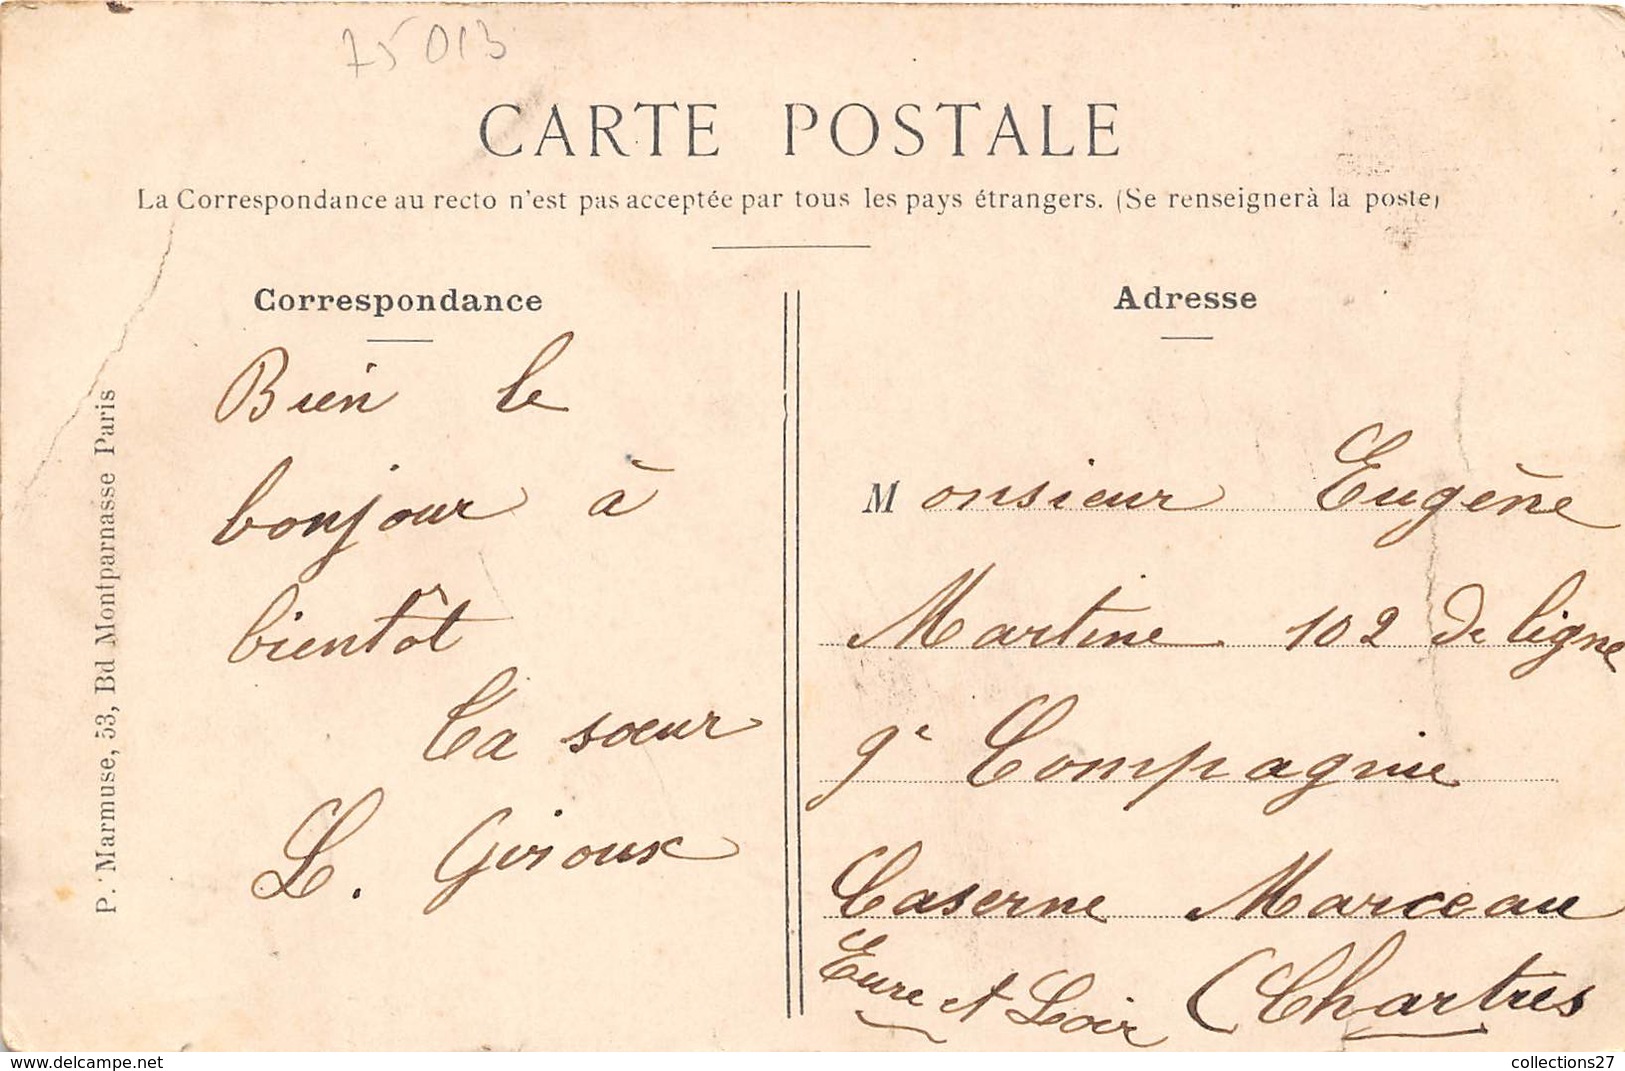 75013
CARTE POSTALE
La Correspondance au recto n'est pas acceptée par tous les pays étrangers. (Se renseigner à la poste)
Correspondance
Bien le
bonjour à
bientôt
Ta sœur
L. Giroux
P. Marmuse, 53, Bd Montparnasse Paris
Adresse
Monsieur Eugène
Martine 102 de ligne
9e Compagnie
Caserne Marceau
Eure et Loir (Chartres
https://www.delcampe.net
collections27